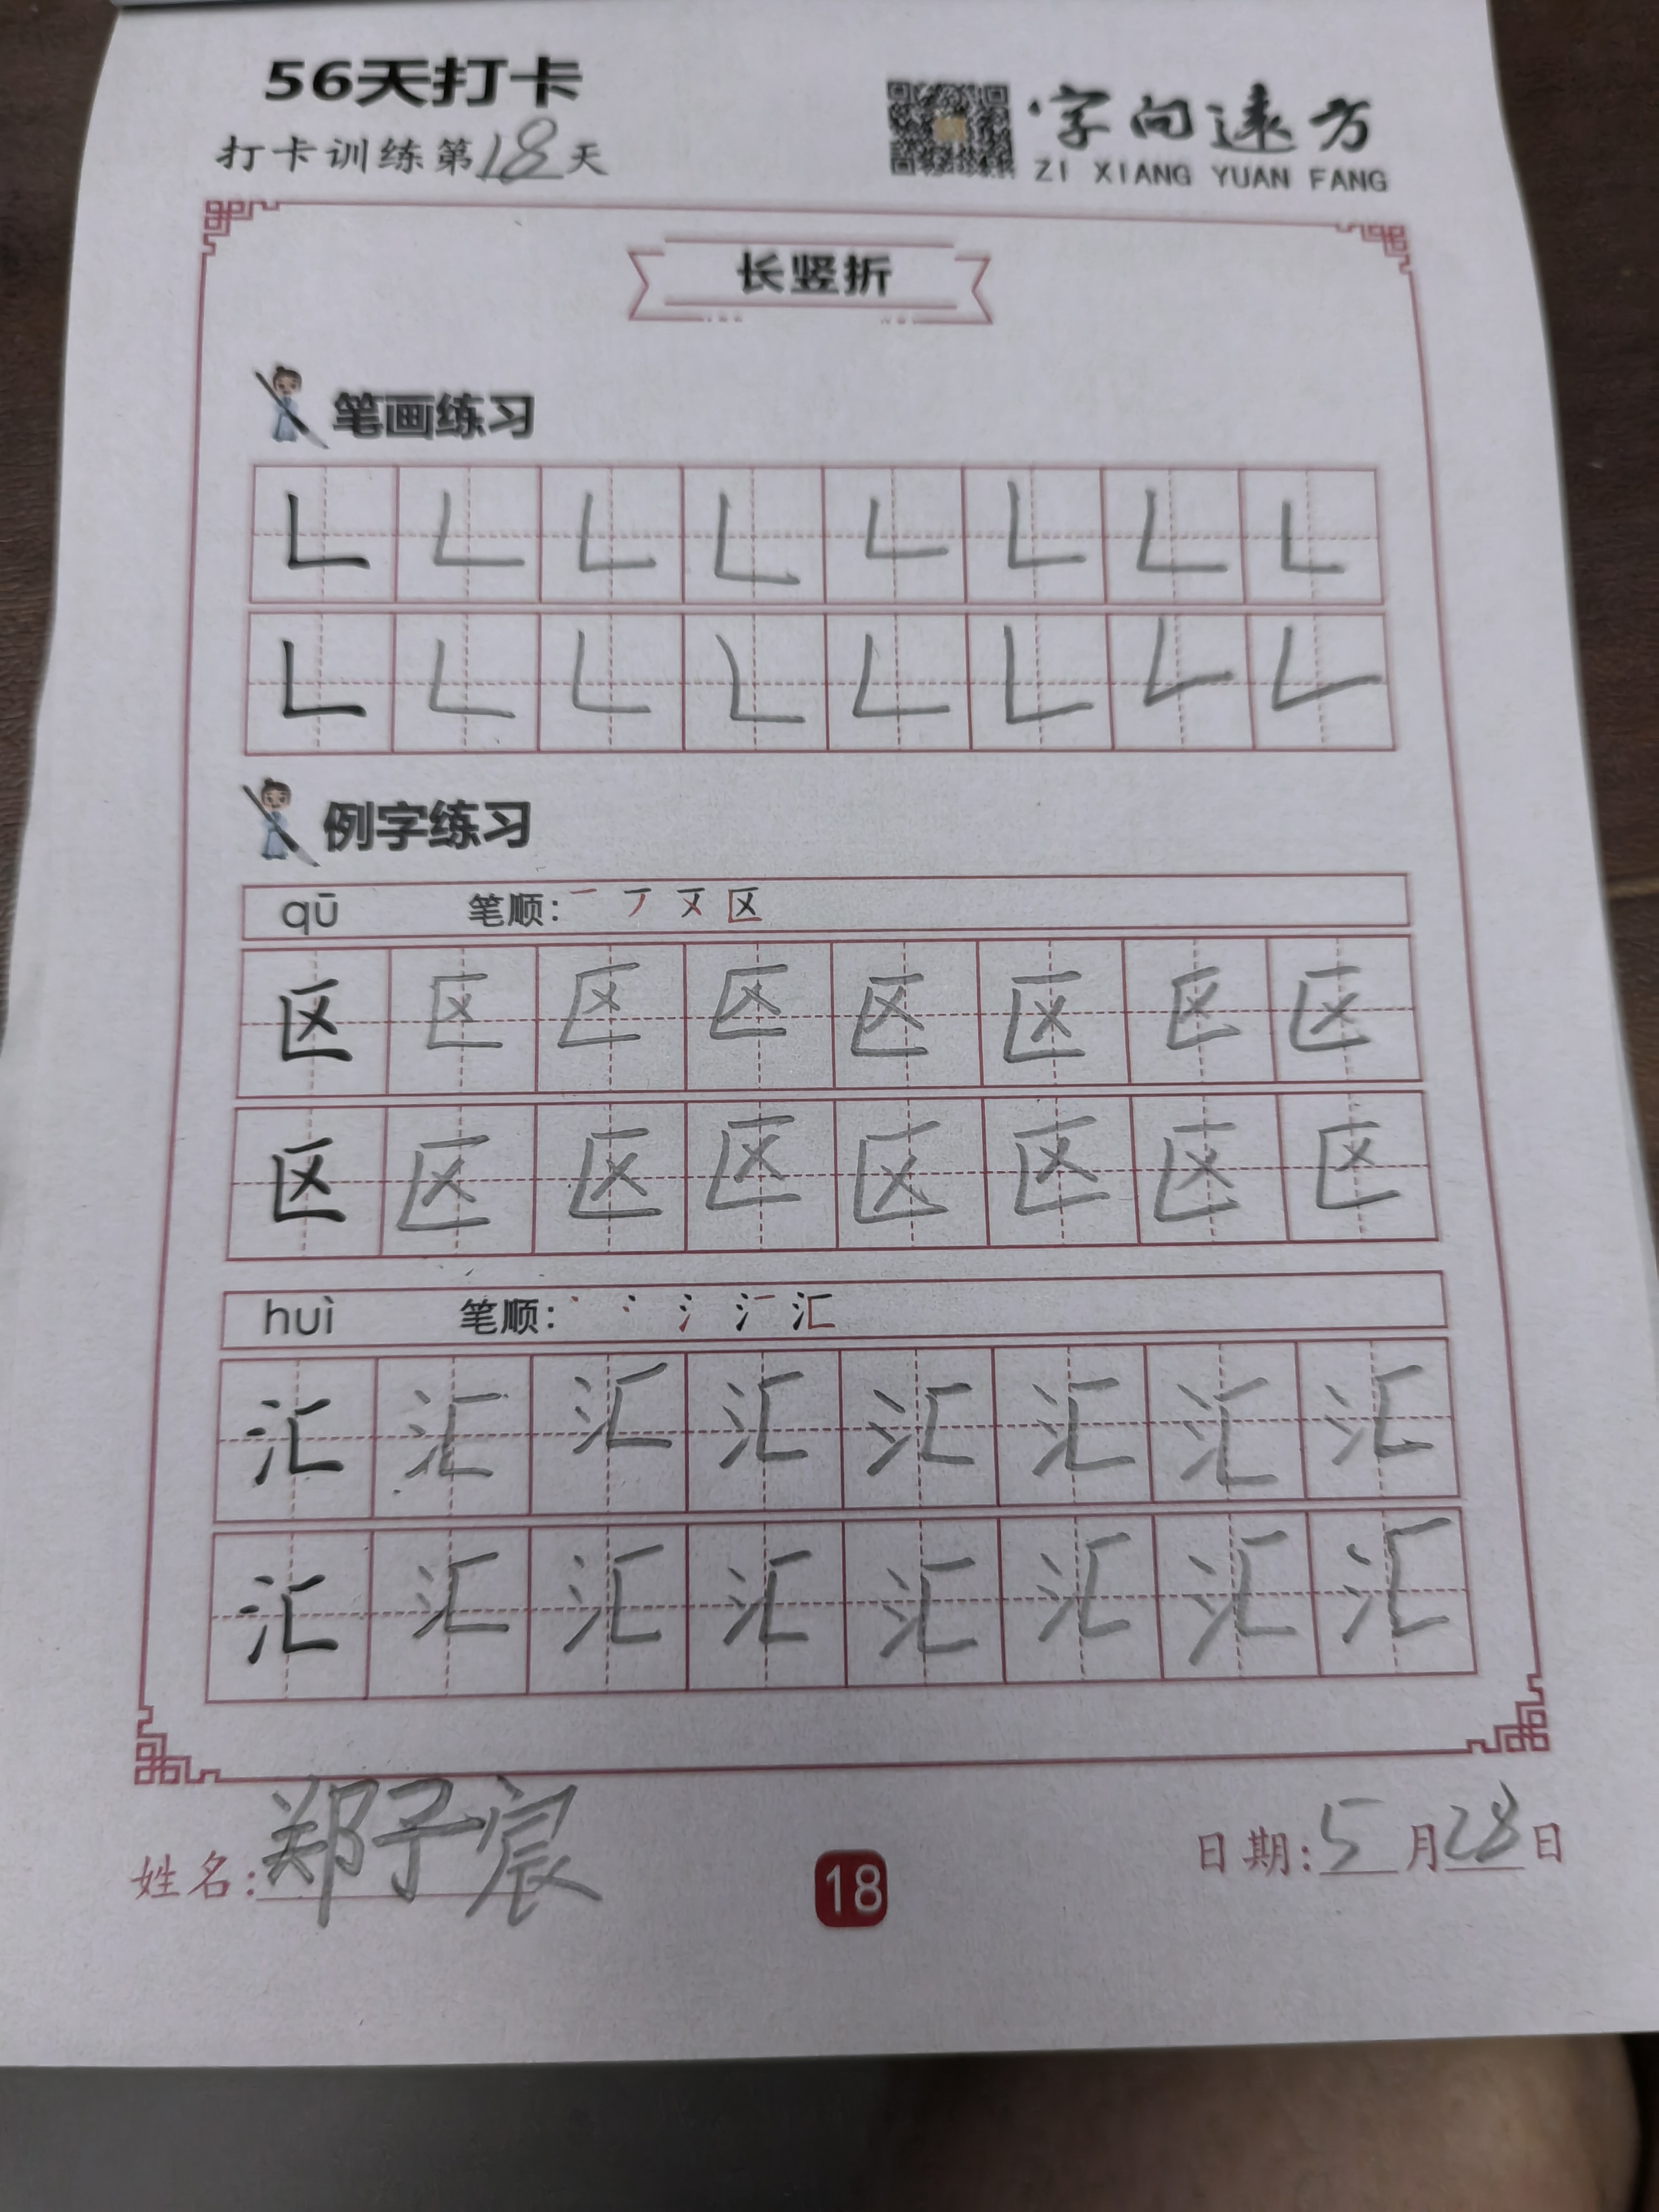 56天打卡
打卡训练第18天
字向远方
ZI XIANG YUAN FANG
长竖折
笔画练习
𠃊 𠃊 𠃊 𠃊 𠃊 𠃊 𠃊 𠃊
𠃊 𠃊 𠃊 𠃊 𠃊 𠃊 𠃊 𠃊
例字练习
qū 笔顺: 区
区 区 区 区 区 区 区 区
区 区 区 区 区 区 区 区
huì 笔顺: 汇
汇 汇 汇 汇 汇 汇 汇 汇
汇 汇 汇 汇 汇 汇 汇 汇
姓名:郑子宸
18
日期:5月28日